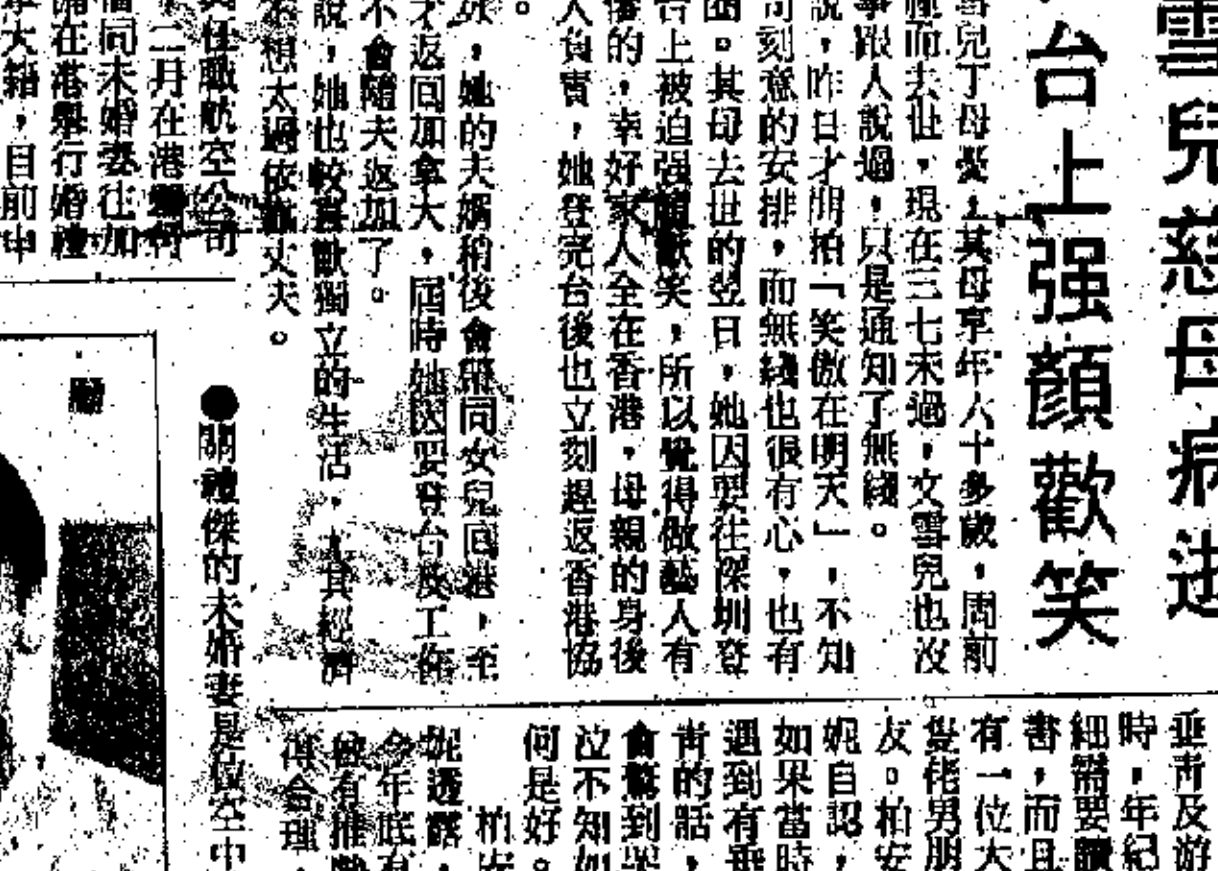 雪兒慈母病逝
台上强顏歡笑
雪兒丁母憂,其母享年六十多歲,周前
而去世,現在三七未過,文雪兒也沒
事跟人說過,只是通知了無綫。
說,昨日才開拍「笑傲在明天」,不知
司刻意的安排,而無綫也很有心,也有
。其母去世的翌日,她因要往深圳登
台上被迫强顏歡笑,所以覺得做藝人有
的,幸好家人全在香港,母親的身後
人負責,她登完台後也立刻趕返香港協
。
,她的夫婿稍後會飛同女兒回港,至
才返回加拿大,屆時她因要登台及工作
不會隨夫返加了。
說,她也較喜歡獨立的生活,人其經濟
想太過依賴丈夫。
任職航空公司
二月在港舉行
同未婚妻往加
在港舉行婚禮
大籍,目前中
●關禮傑的未婚妻是位空中
垂青及游
時,年紀
細需要讀
書,而且
有一位大
隻佬男朋
友。柏安
妮自認,
如果當時
遇到有垂
青的話,
會驚到哭
泣不知如
何是好。
柏安
妮透露,
今年底有
會有推